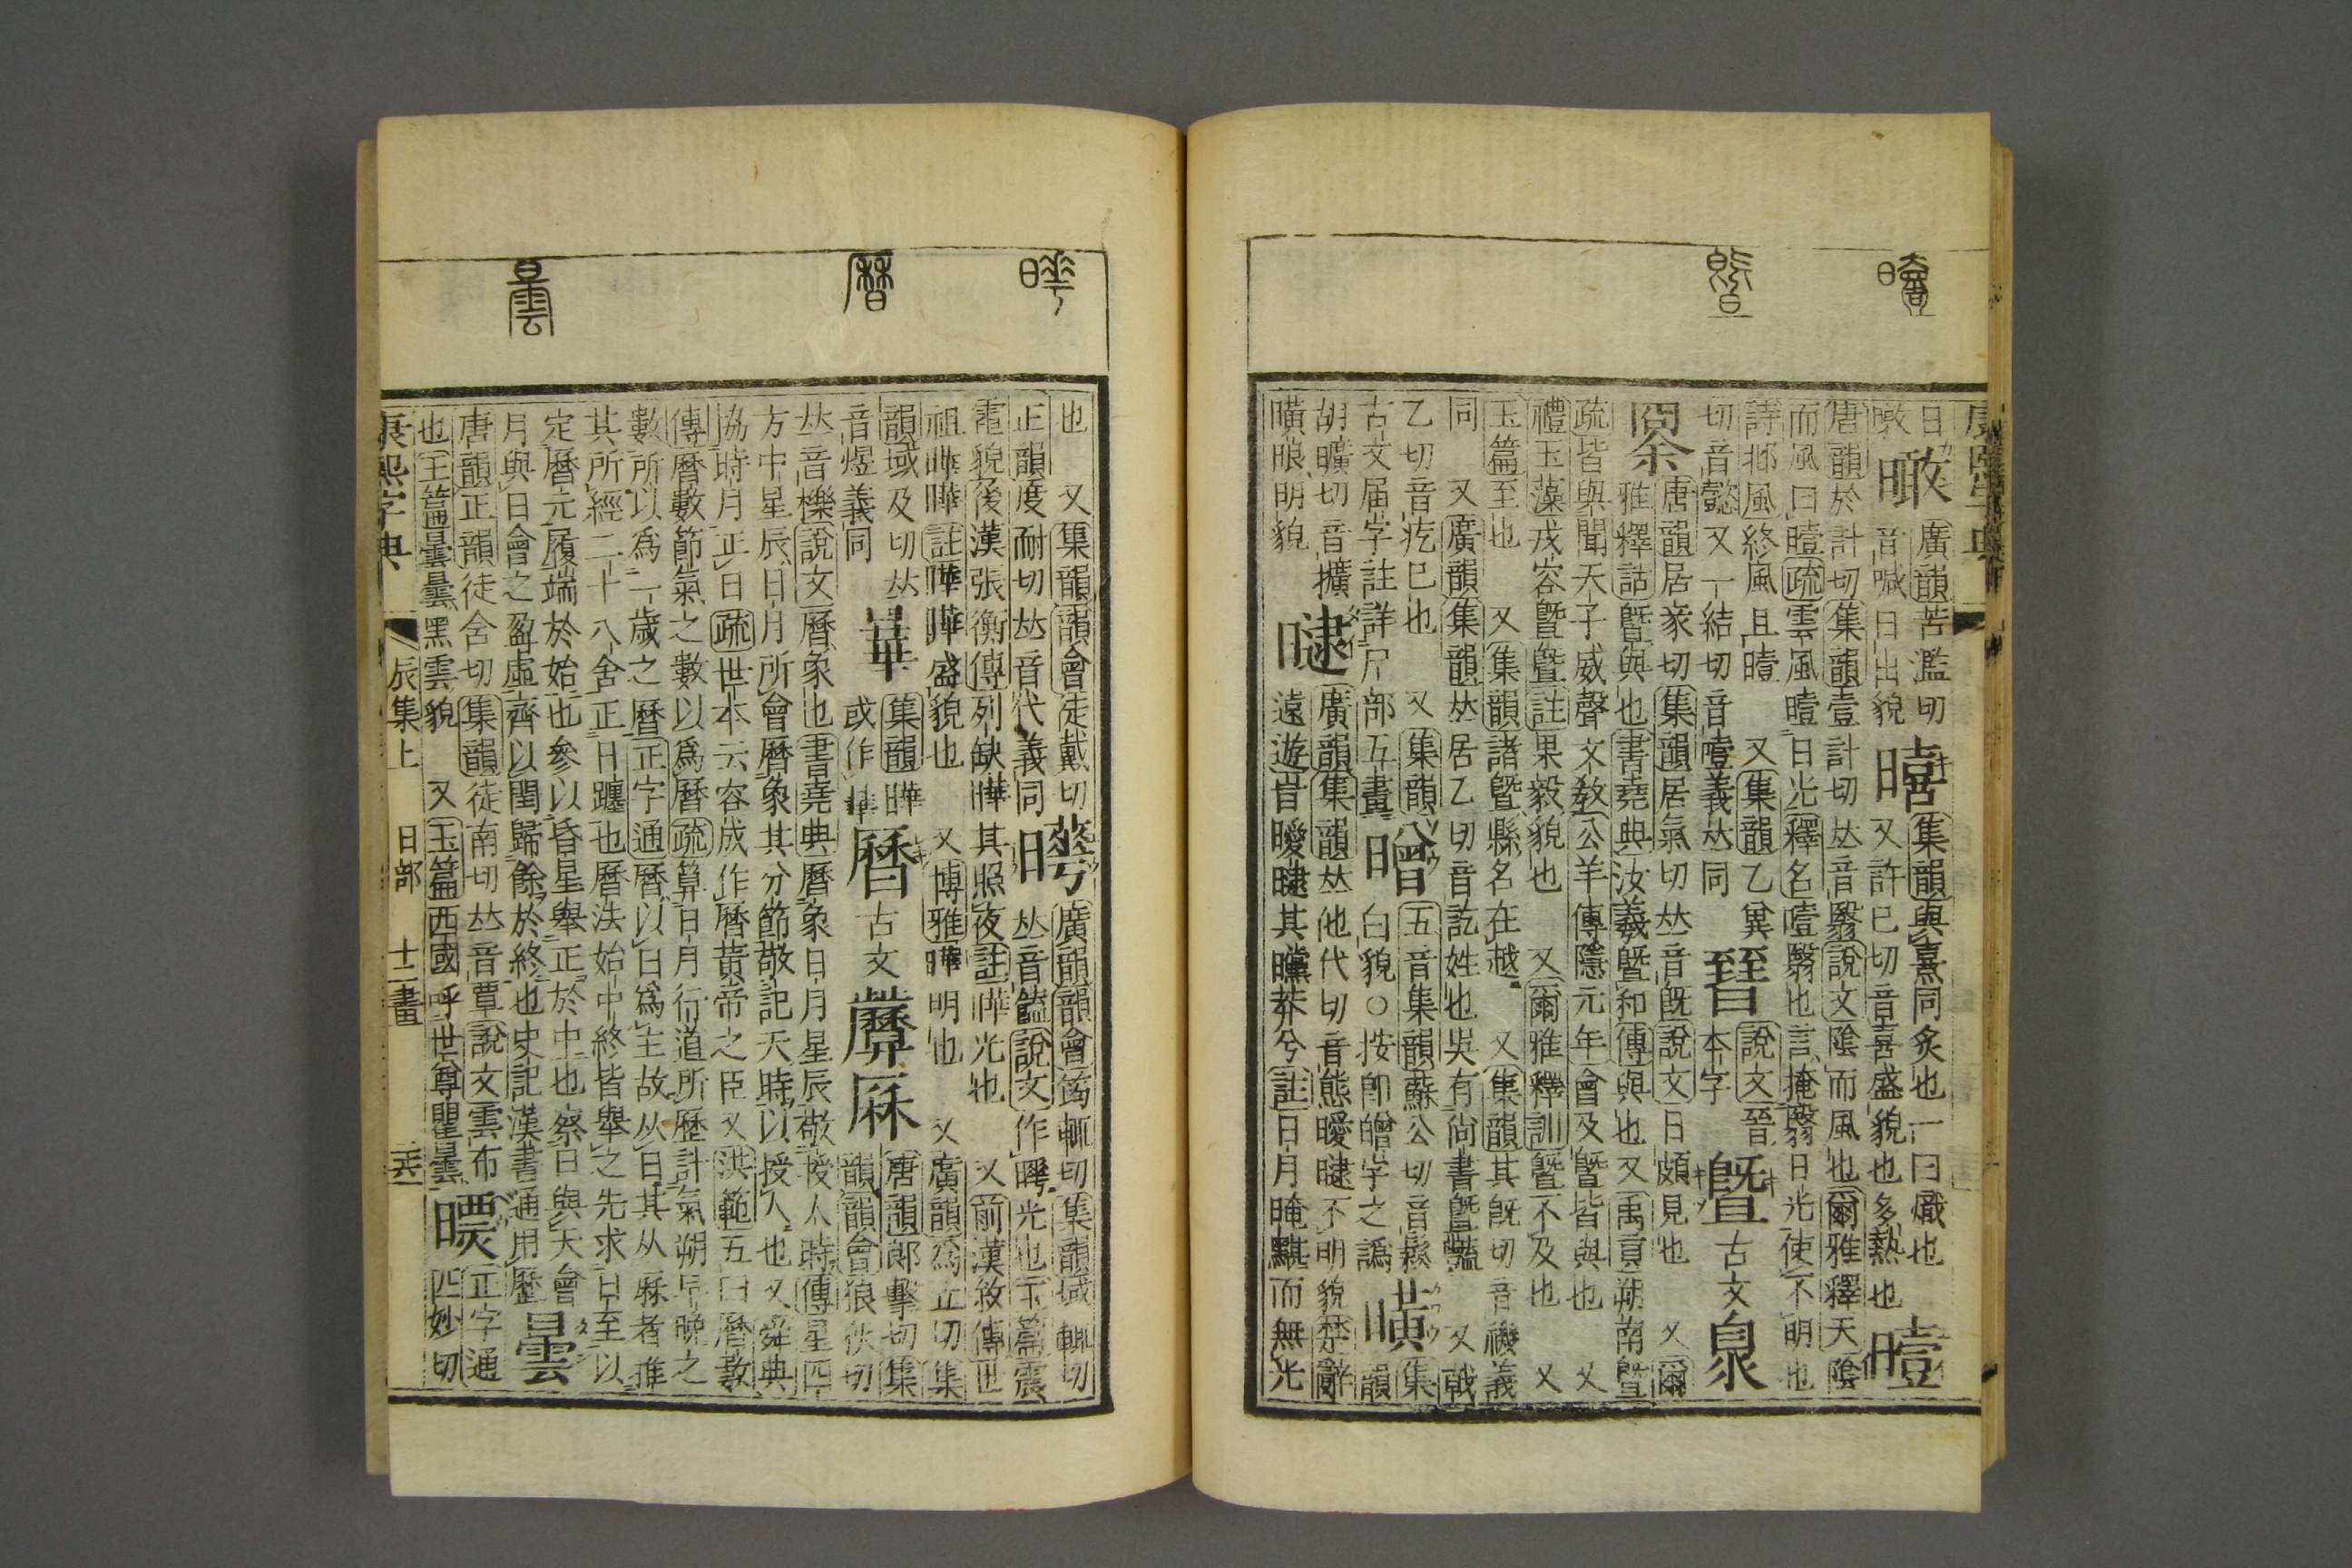 曀
暨
日
暾
㬀
廣韻苦濫切
音喊日出貌
暿
集韻與熹同炙也一曰熾也
又許已切音喜盛貌也多熱也
曀
唐韻於計切集韻壹計切𠀤音翳說文陰而風也爾雅釋天陰
而風曰曀疏雲風曀日光釋名曀翳也言掩翳日光使不明也
詩邶風終風且曀 又集韻乙冀
切音懿又一結切音噎義𠀤同
㬜
說文晉
本字
暨
古文
臮
唐韻居家切集韻居氣切𠀤音旣說文日頗見也 又爾
雅釋詁暨與也書堯典汝羲暨和傳與也又禹貢朔南暨
疏皆與聞天子威聲文敎公羊傳隱元年會及暨皆與也 又
禮玉藻戎容暨暨註果毅貌也 又爾雅釋訓暨不及也 又
玉篇至也 又集韻諸暨縣名在越 又集韻其旣切音禨義
同 又廣韻集韻𠀤居乙切音訖姓也吳有尙書暨豔 又戟
乙切音疙已也 又集韻
古文届字註詳尸部五畫
㬝
五音集韻蘇公切音鬆
白貌○按卽皾字之譌
㬻
集
韻
胡曠切音擴
曂㫰明貌
曃
廣韻集韻𠀤他代切音態曖曃不明貌楚辭
遠遊旹曖曃其曭莽兮註日月晻黮而無光
曄
曆
曇
也 又集韻韻會徒戴切
正韻度耐切𠀤音代義同
曄
廣韻韻會筠輒切集韻域輒切
𠀤音饁說文作㬒光也玉篇震
電貌後漢張衡傳列缺曄其照夜註曄光也 又前漢敘傳世
祖曄曄註曄曄盛貌也 又博雅曄明也 又廣韻爲立切集
韻域及切𠀤
音煜義同
㬒
集韻曄
或作㬒
曆
古文
厤
唐韻郎擊切集
韻韻會狼狄切
𠀤音櫟說文曆象也書堯典曆象日月星辰敬授人時傳星四
方中星辰日月所會曆象其分節敬記天時以授人也又舜典
協時月正日疏世本云容成作曆黃帝之臣又洪範五曰曆數
傳曆數節氣之數以爲曆疏算日月行道所歷計氣朔早晚之
數所以爲一歲之曆正字通曆以日爲主故从日其从厤者推
其所經二十八舍正日躔也曆法始中終皆舉之先求日至以
定曆元履端於始也參以昏星舉正於中也察日與天會
月與日會之盈虛齊以閏歸餘於終也史記漢書通用歷
曇
唐韻正韻徒含切集韻徒南切𠀤音覃說文雲布
也玉篇曇曇黑雲貌 又玉篇西國呼世尊瞿曇
㬓
正字通
匹妙切
康熙字典 辰集上 日部 十二畫